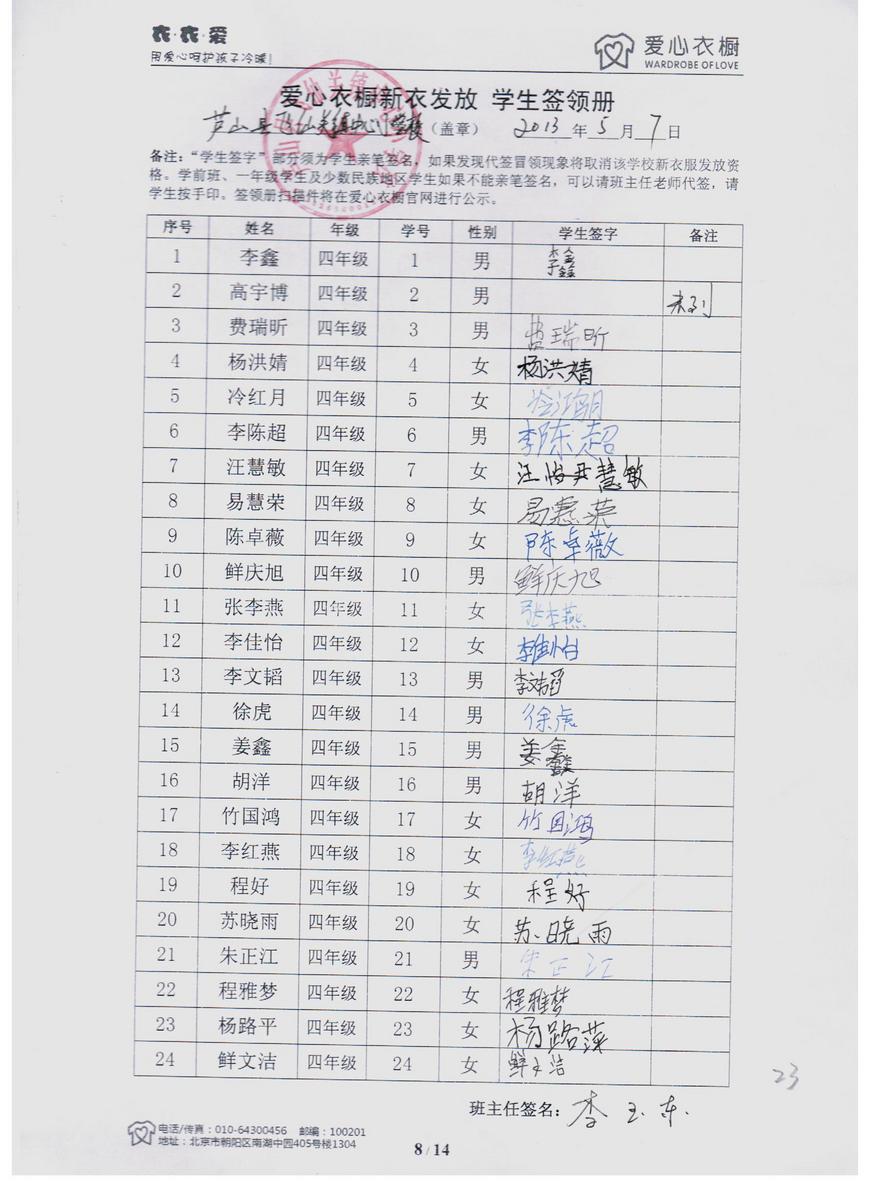 衣·衣·爱
用爱心呵护孩子冷暖!
爱心衣橱
WARDROBE OF LOVE
爱心衣橱新衣发放 学生签领册
芦山县飞仙关镇中心小学校（盖章） 2013 年 5 月 7 日
备注：“学生签字”部分须为学生亲笔签名，如果发现代签冒领现象将取消该学校新衣服发放资
格。学前班、一年级学生及少数民族地区学生如果不能亲笔签名，可以请班主任老师代签，请
学生按手印。签领册扫描件将在爱心衣橱官网进行公示。
序号 姓名 年级 学号 性别 学生签字 备注
1 李鑫 四年级 1 男 李鑫
2 高宇博 四年级 2 男 未到
3 费瑞昕 四年级 3 男 费瑞昕
4 杨洪婧 四年级 4 女 杨洪婧
5 冷红月 四年级 5 女 冷鸿月
6 李陈超 四年级 6 男 李陈超
7 汪慧敏 四年级 7 女 汪 慧敏
8 易慧荣 四年级 8 女 易慧荣
9 陈卓薇 四年级 9 女 陈卓薇
10 鲜庆旭 四年级 10 男 鲜庆旭
11 张李燕 四年级 11 女 张李燕
12 李佳怡 四年级 12 女 李佳怡
13 李文韬 四年级 13 男 李文韬
14 徐虎 四年级 14 男 徐虎
15 姜鑫 四年级 15 男 姜鑫
16 胡洋 四年级 16 男 胡洋
17 竹国鸿 四年级 17 女 竹国鸿
18 李红燕 四年级 18 女 李红燕
19 程好 四年级 19 女 程好
20 苏晓雨 四年级 20 女 苏晓雨
21 朱正江 四年级 21 男 朱正江
22 程雅梦 四年级 22 女 程雅梦
23 杨路平 四年级 23 女 杨路萍
24 鲜文洁 四年级 24 女 鲜文洁
23
班主任签名：李玉东
电话/传真：010-64300456 邮编：100201
地址：北京市朝阳区南湖中园405号楼1304
8 / 14